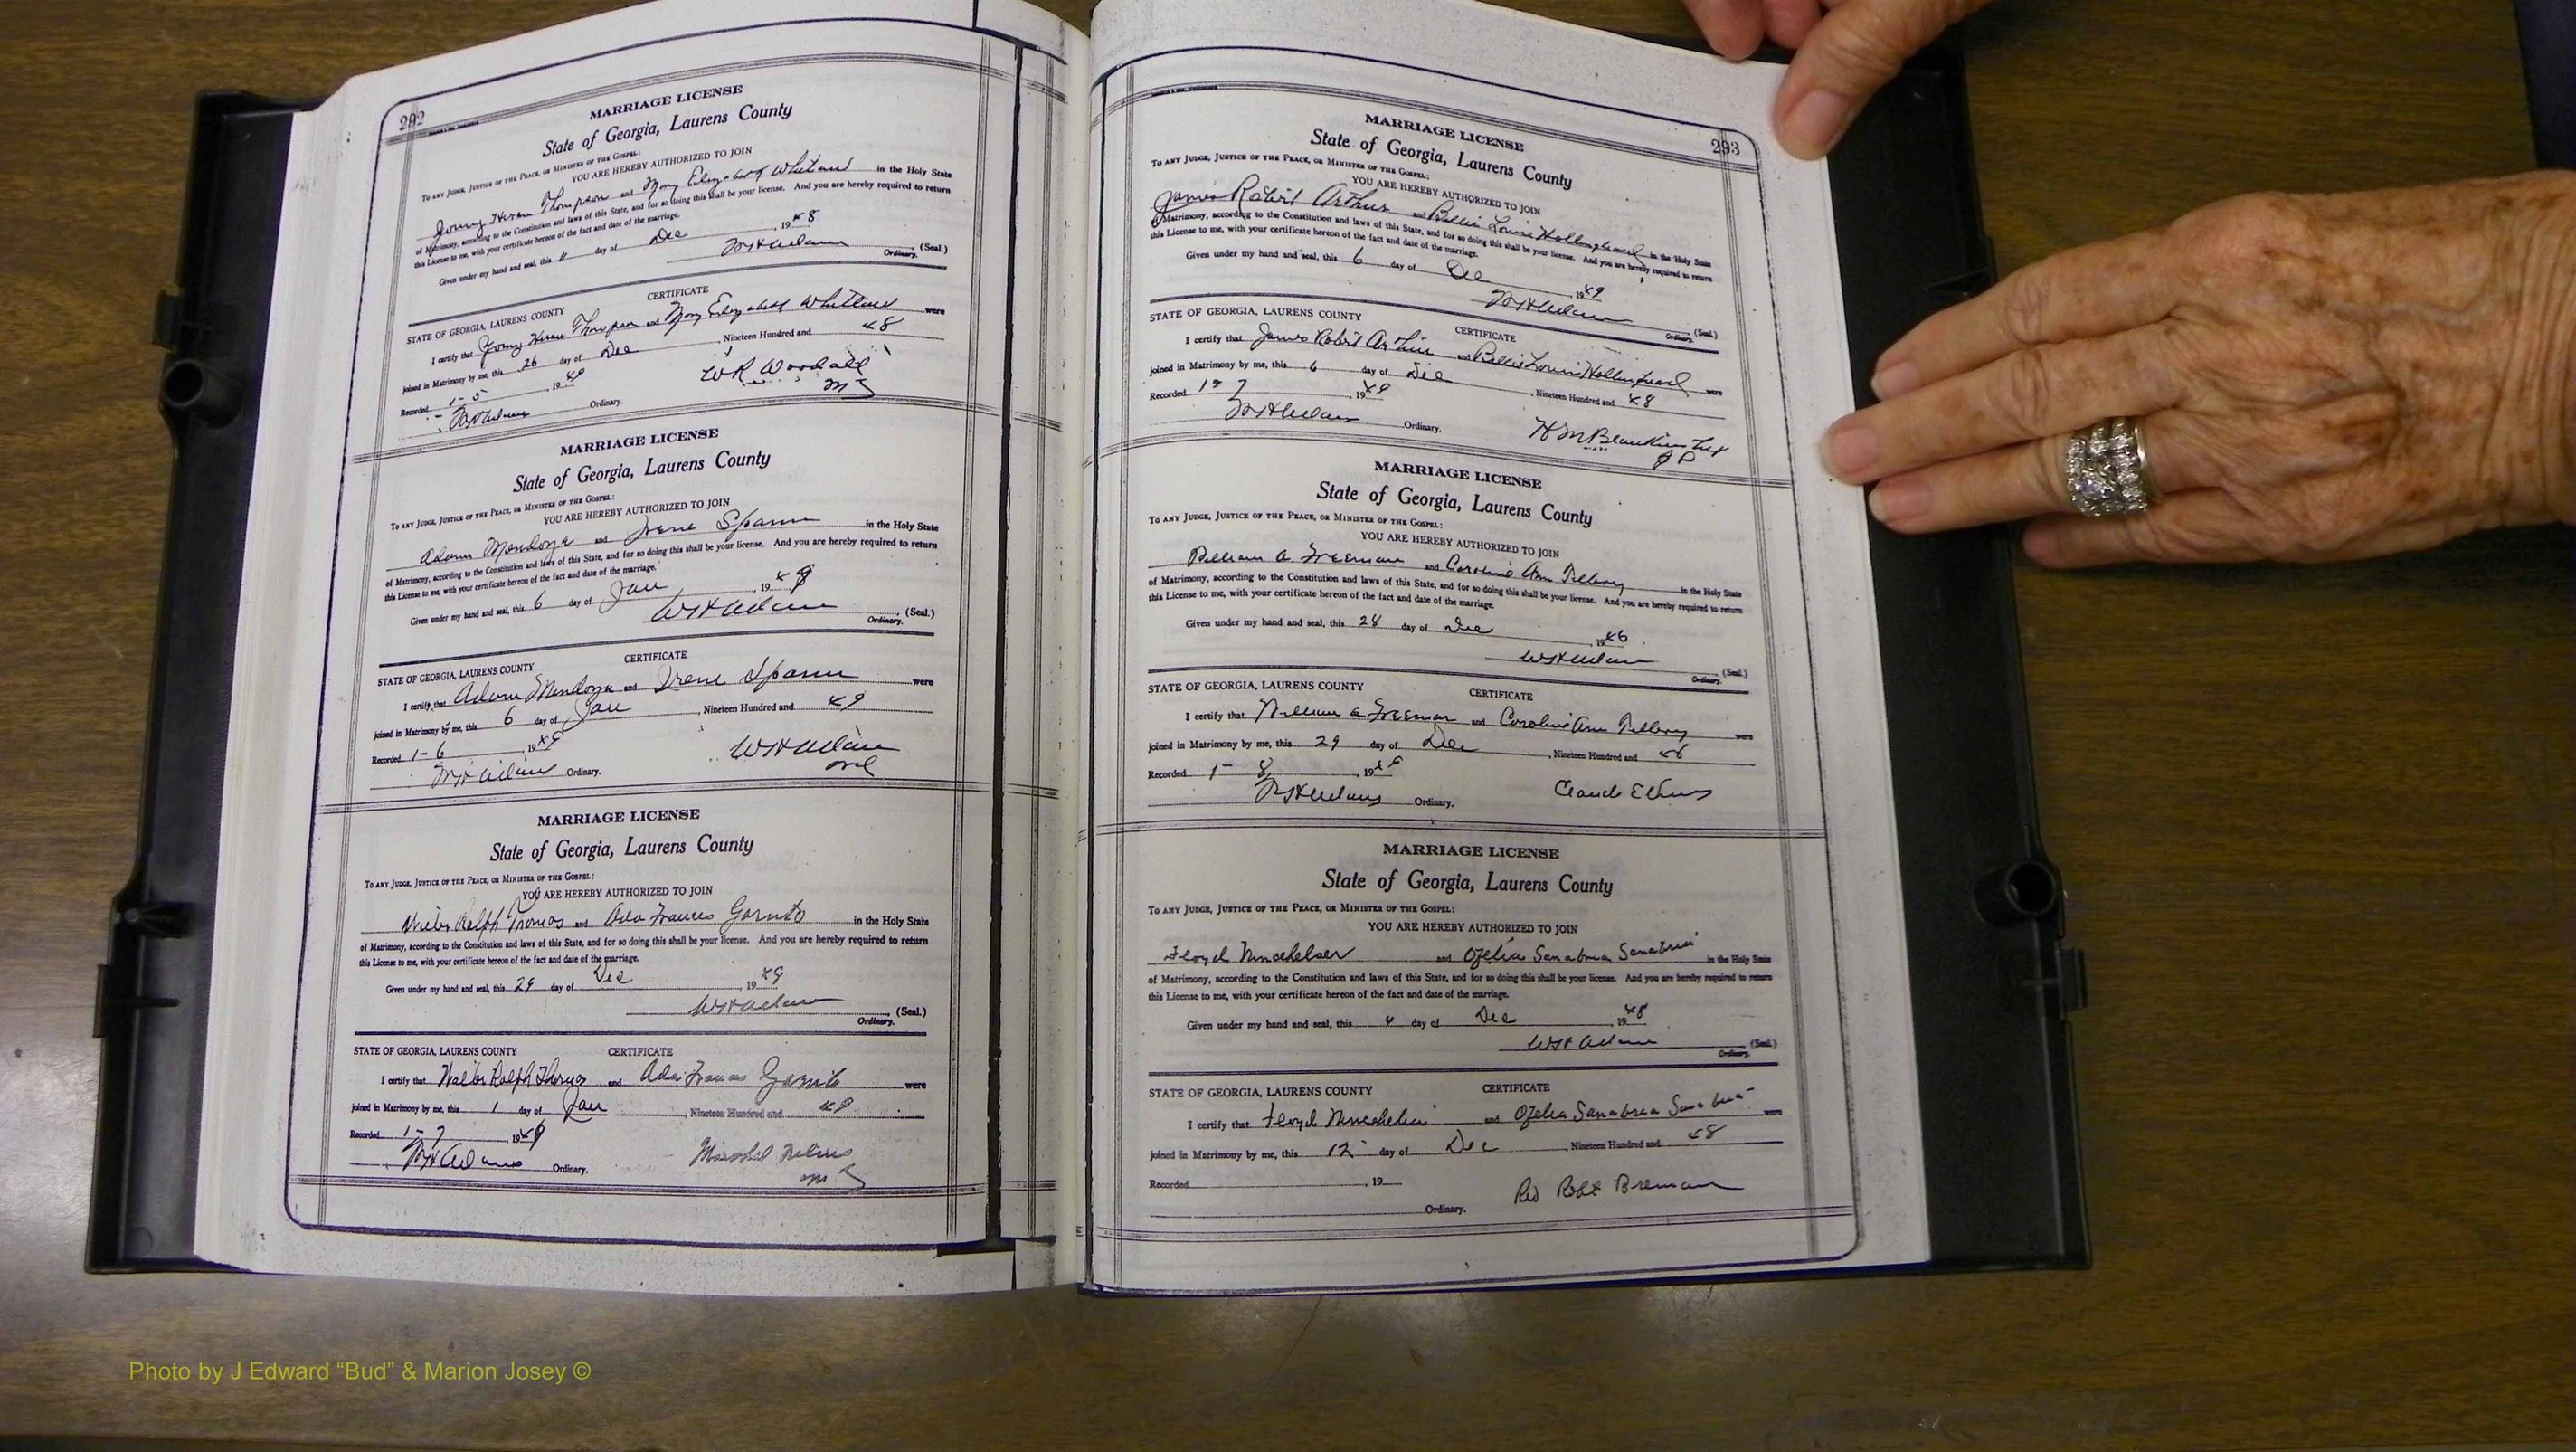 292
MARRIAGE LICENSE
State of Georgia, Laurens County
To ANY JUDGE, JUSTICE OF THE PEACE, OR MINISTER OF THE GOSPEL:
YOU ARE HEREBY AUTHORIZED TO JOIN
Thompson and Mary Elizabeth Whitlow in the Holy State
of Matrimony, according to the Constitution and laws of this State, and for so doing this shall be your license. And you are hereby required to return
this License to me, with your certificate hereon of the fact and date of the marriage.
Given under my hand and seal, this 11 day of Dec, 1948
WHAdams (Seal.)
Ordinary.
CERTIFICATE
STATE OF GEORGIA, LAURENS COUNTY
I certify that Thompson and Mary Elizabeth Whitlow were
joined in Matrimony by me, this 26 day of Dec, Nineteen Hundred and 48
Recorded 1-5, 1949
WR Woodall
MG
WHAdams Ordinary.
MARRIAGE LICENSE
State of Georgia, Laurens County
To ANY JUDGE, JUSTICE OF THE PEACE, OR MINISTER OF THE GOSPEL:
YOU ARE HEREBY AUTHORIZED TO JOIN
Adam Mendoza and Irene Spann in the Holy State
of Matrimony, according to the Constitution and laws of this State, and for so doing this shall be your license. And you are hereby required to return
this License to me, with your certificate hereon of the fact and date of the marriage.
Given under my hand and seal, this 6 day of Jan, 1949
WHAdams (Seal.)
Ordinary.
CERTIFICATE
STATE OF GEORGIA, LAURENS COUNTY
I certify that Adam Mendoza and Irene Spann were
joined in Matrimony by me, this 6 day of Jan, Nineteen Hundred and 49
Recorded 1-6, 1949
WHAdams
WHAdams Ordinary.
MARRIAGE LICENSE
State of Georgia, Laurens County
To ANY JUDGE, JUSTICE OF THE PEACE, OR MINISTER OF THE GOSPEL:
YOU ARE HEREBY AUTHORIZED TO JOIN
Ralph Thomas and Ada Frances Garnto in the Holy State
of Matrimony, according to the Constitution and laws of this State, and for so doing this shall be your license. And you are hereby required to return
this License to me, with your certificate hereon of the fact and date of the marriage.
Given under my hand and seal, this 29 day of Dec, 1949
WHAdams (Seal.)
Ordinary.
STATE OF GEORGIA, LAURENS COUNTY CERTIFICATE
I certify that Ralph Thomas and Ada Frances Garnto were
joined in Matrimony by me, this 1 day of Jan, Nineteen Hundred and 49
Recorded 1-7, 1949
Marshal Nelms
MG
WHAdams Ordinary.
293
MARRIAGE LICENSE
State of Georgia, Laurens County
To ANY JUDGE, JUSTICE OF THE PEACE, OR MINISTER OF THE GOSPEL:
YOU ARE HEREBY AUTHORIZED TO JOIN
James Robert Arthur and Billie Louise Hollingsworth in the Holy State
of Matrimony, according to the Constitution and laws of this State, and for so doing this shall be your license. And you are hereby required to return
this License to me, with your certificate hereon of the fact and date of the marriage.
Given under my hand and seal, this 6 day of Dec 1949
WHAdams (Seal.)
Ordinary.
STATE OF GEORGIA, LAURENS COUNTY CERTIFICATE
I certify that James Robert Arthur and Billie Louise were
joined in Matrimony by me, this 6 day of Dec, Nineteen Hundred and 48
Recorded 1-7, 1949
WHAdams Ordinary.
HM Blankinship
JP
MARRIAGE LICENSE
State of Georgia, Laurens County
To ANY JUDGE, JUSTICE OF THE PEACE, OR MINISTER OF THE GOSPEL:
YOU ARE HEREBY AUTHORIZED TO JOIN
William A Freeman and Caroline Ann Tillery in the Holy State
of Matrimony, according to the Constitution and laws of this State, and for so doing this shall be your license. And you are hereby required to return
this License to me, with your certificate hereon of the fact and date of the marriage.
Given under my hand and seal, this 28 day of Dec, 1946
WHAdams (Seal.)
Ordinary.
STATE OF GEORGIA, LAURENS COUNTY CERTIFICATE
I certify that William A Freeman and Caroline Ann Tillery were
joined in Matrimony by me, this 29 day of Dec, Nineteen Hundred and 46
Recorded 1-8, 1949
WHAdams Ordinary. Claude
MARRIAGE LICENSE
State of Georgia, Laurens County
To ANY JUDGE, JUSTICE OF THE PEACE, OR MINISTER OF THE GOSPEL:
YOU ARE HEREBY AUTHORIZED TO JOIN
Floyd and Ofelia Sanabria Sanabria in the Holy State
of Matrimony, according to the Constitution and laws of this State, and for so doing this shall be your license. And you are hereby required to return
this License to me, with your certificate hereon of the fact and date of the marriage.
Given under my hand and seal, this 4 day of Dec, 1948
WHAdams (Seal.)
Ordinary.
STATE OF GEORGIA, LAURENS COUNTY CERTIFICATE
I certify that Floyd and Ofelia Sanabria Sanabria were
joined in Matrimony by me, this 12 day of Dec, Nineteen Hundred and 48
Recorded, 19
Rev Robt Brennan
Ordinary.
Photo by J Edward “Bud” & Marion Josey ©